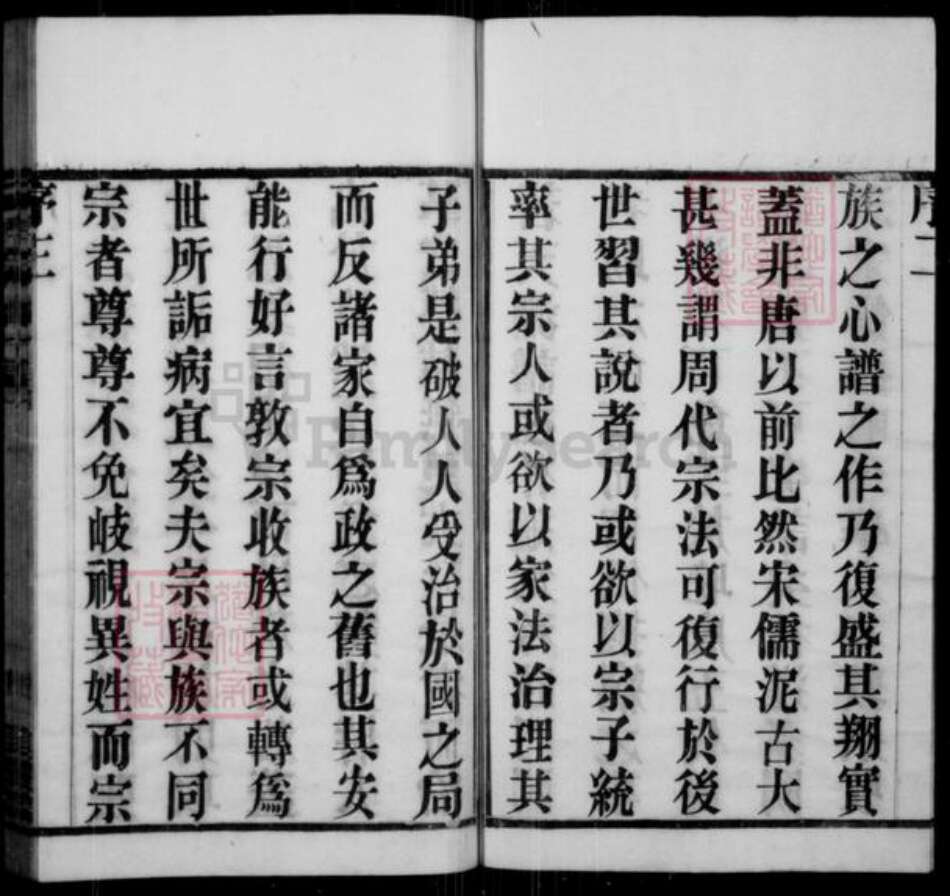 序二
族之心譜之作乃復盛其翔實
蓋非唐以前比然宋儒泥古大
甚幾謂周代宗法可復行於後
世習其說者乃或欲以宗子統
率其宗人或欲以家法治理其
子弟是破人人受治於國之局
而反諸家自爲政之舊也其安
能行好言敦宗收族者或轉爲
世所詬病宜矣夫宗與族不同
宗者尊尊不免岐視異姓而宗
序三
FamilySearch